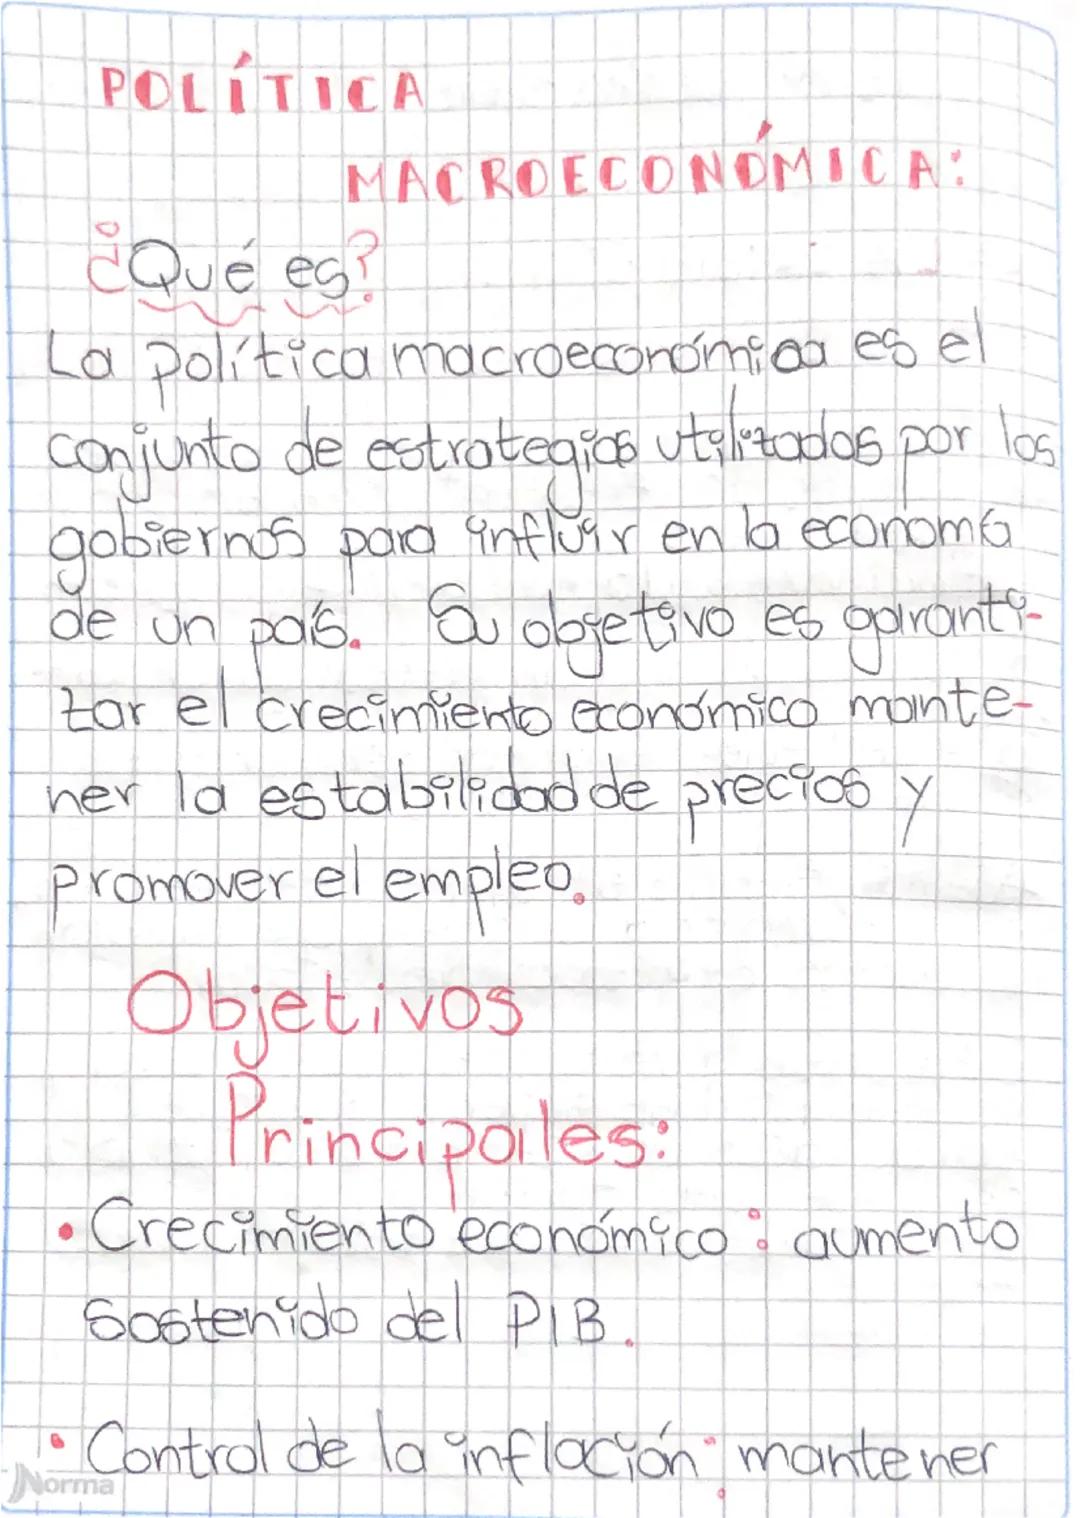 POLÍTICA
MACROECONÓMICA:
¿Qué es?
La política macroeconómica es el
conjunto de estrategias utilizadas por los
gobiernos para influir en la economía
de un país. Su objetivo es garanti-
zar el crecimiento económico mante-
ner la estabilidad de precios y
promover el empleo.
Objetivos
Principales:
• Crecimiento económico: aumento
sostenido del PIB.
• Control de la inflación: mantener
Norma